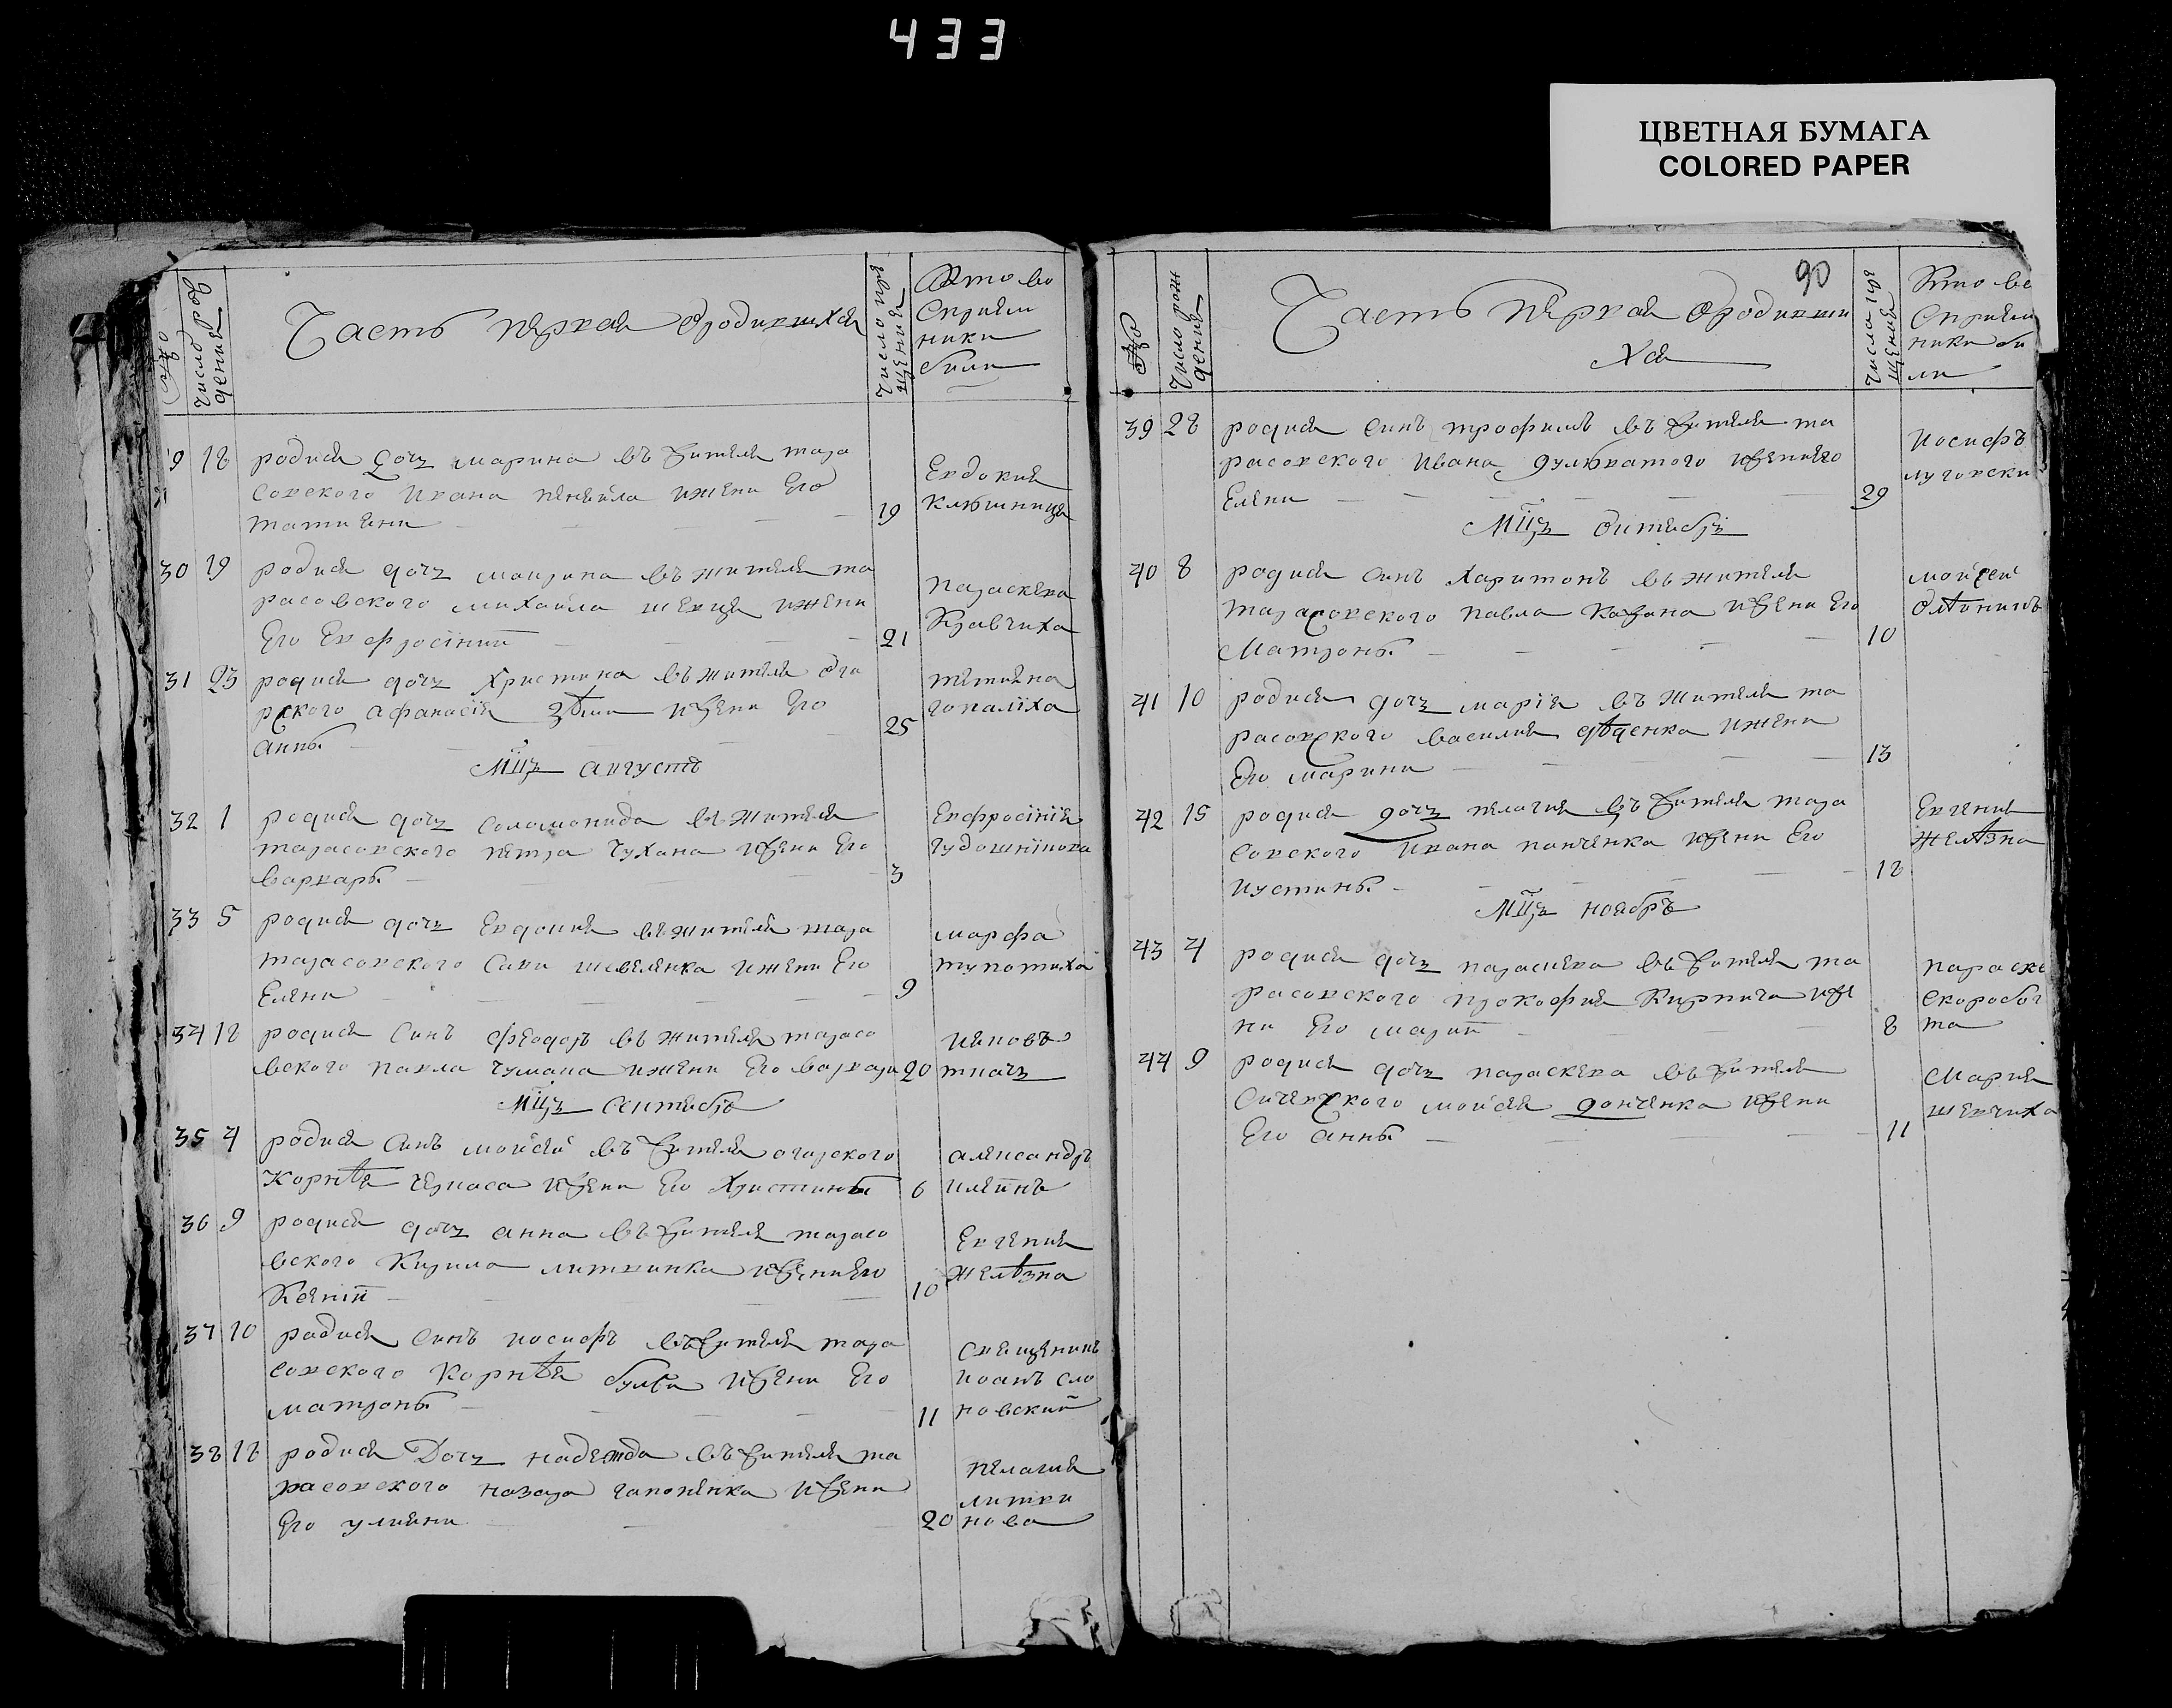 433
ЦВЕТНАЯ БУМАГА
COLORED PAPER
Число рождения
Часть первая о родившихся
Число крещения
Кто во
сприем
ники
били
19 18 родися дочь марина въ жителя тара
совского ивана ижени Его
татияни 19
Евдокия
Ключница
30 19 родися дочь въ жителя та
расовского михаила шевця ижени
Его Евфросинии 21
параскева
Кравчиха
31 23 родися дочь христина въ жителя ога
рского афанасия ижени Его
анны 25
татияна
гопалиха
Мцъ августъ
32 1 родися дочь соломонида въ жителя
тарасовского петра чухана ижени Его
варвары 3
Евфросиния
33 5 родися дочь Евдокия въ жителя тара
тарасовского Сави шевеленка ижени Его
Елени 9
марфа
тупотиха
34 18 родися Синъ феодоръ въ жителя тарасо
вского павла чумака ижени Его варвари 20
ияковъ
ткачъ
Мцъ сентябрь
35 4 родися синъ мойсей въ жителя огарского
Корнѣя черкаса ижени Его Христины 6
александръ
36 9 родися дочь анна въ жителя тарасо
вского Кирила литвинка ижени Его
Ксении 10
Евгения
желѣзна
37 10 родися синъ иосифъ въ жителя тара
совского Корнѣя булби ижени Его
матроны 11
священикъ
иоанъ сло
новский
38 18 родися Дочь надежда въ жителя та
расовского назара гапоненка ижени
Его улияни 20
пелагия
литви
нова
90
Число рож
дения
Часть первая о родивши
хся
Число кре
щения
Кто во
сприем
ники би
ли
39 28 родися синъ трофимъ въ жителя та
расовского ивана ижени Его
Елени 29
иосифъ
луговски
Мцъ октябрь
40 8 родися синъ харитонъ въ жителя
тарасовского павла казана ижени Его
Матроны 10
мойсей
41 10 родися дочь мария въ жителя та
расовского василия дѣденка ижени
Его марини 13
42 15 родися дочь пелагия въ жителя тара
совского ивана панченка ижени Его
иустины 18
Евгения
желѣзна
Мцъ ноябрь
43 4 родися дочь параскева въ жителя та
расовского прокофия Кирпича иже
ни Его марии 8
параске
скоробог
та
44 9 родися дочь параскева въ жителя
мойсея донченка ижени
Его анны 11
Мария
шевчиха